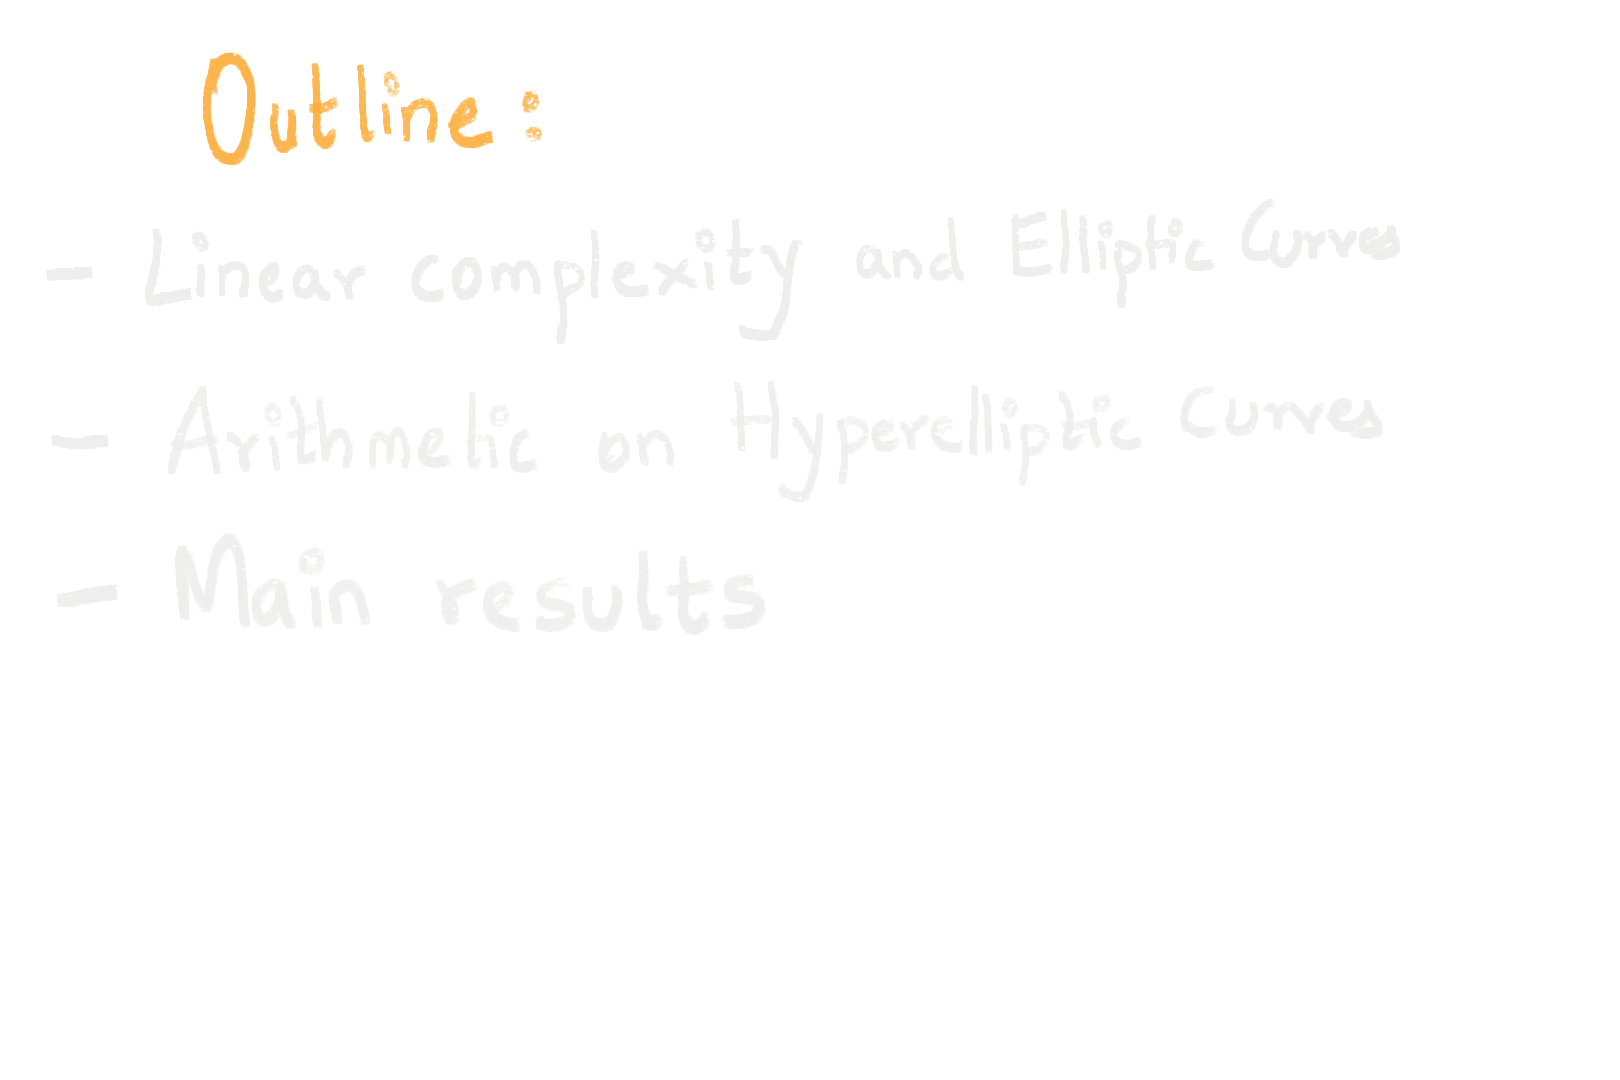 Outline:
- Linear complexity and Elliptic Curves
- Arithmetic on Hyperelliptic Curves
- Main results